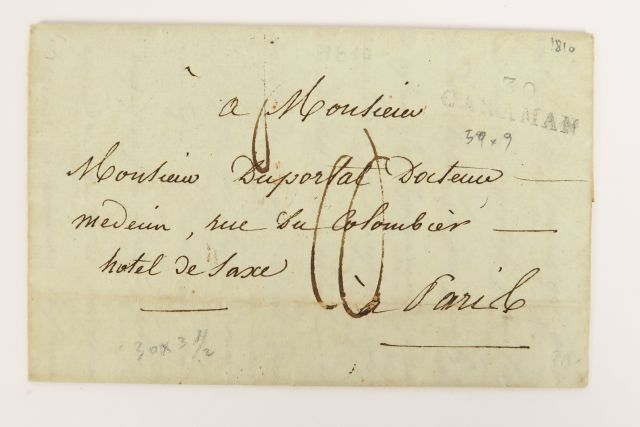 1810
30
CARAMAN
39 x 9
à Monsieur
Monsieur Duportal Docteur
medecin, rue du Colombier
hotel de Saxe
à Paris
30 x 3 1/2